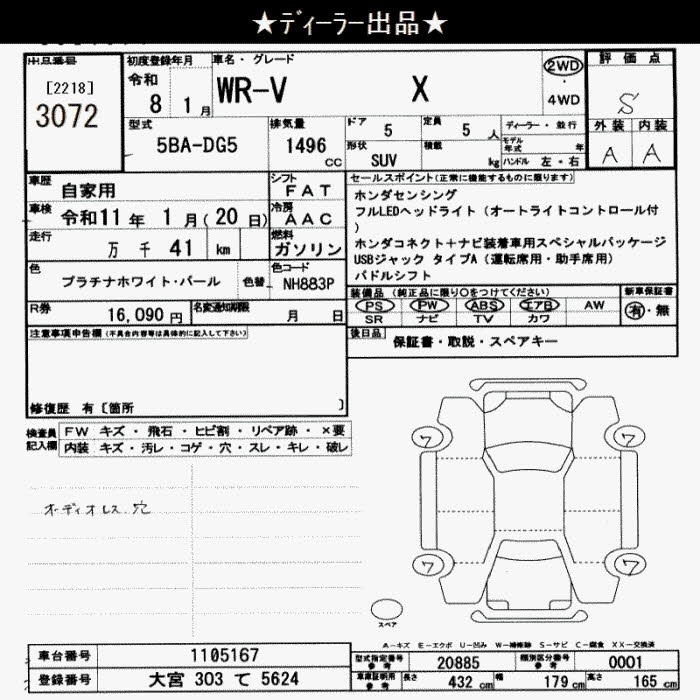 ★ディーラー出品★
出品番号
[2218]
3072
初度登録年月
令和
8 1月
車名・グレード
WR-V X
2WD
4WD
評価点
S
外装 内装
A A
型式
5BA-DG5
排気量
1496 cc
ドア 5
定員 5 人
形状 SUV
積載 kg
ディーラー・並行
モデル年式 年
ハンドル 左・右
車歴
自家用
シフト
FAT
車検
令和11年 1月(20日)
冷房
AAC
走行
万 千 41 km
燃料
ガソリン
色
プラチナホワイト・パール
色替
色コード
NH883P
R券
16,090円
名変通知期限
月 日
セールスポイント(正常に機能するものに限ります)
ホンダセンシング
フルLEDヘッドライト(オートライトコントロール付
)
ホンダコネクト+ナビ装着車用スペシャルパッケージ
USBジャック タイプA(運転席用・助手席用)
パドルシフト
装備品(純正品に限り○をつけてください)
PS PW ABS エアB AW
SR ナビ TV カワ
新車保証書
有・無
後日品
保証書・取説・スペアキー
注意事項申告欄(不具合内容等は具体的に記入して下さい)
修復歴 有〔箇所 〕
検査員記入欄
FW キズ・飛石・ヒビ割・リペア跡・×要
内装 キズ・汚レ・コゲ・穴・スレ・キレ・破レ
オーディオレス穴
ワ ワ
ワ ワ
スペア
A-キズ E-エクボ U-凹み W-補修跡 S-サビ C-腐食 XX-交換済
車台番号 1105167
登録番号 大宮 303 て 5624
型式指定番号 参考 20885
類別区分番号 参考 0001
車庫証明用 参考 長さ 432 cm 幅 179 cm 高さ 165 cm